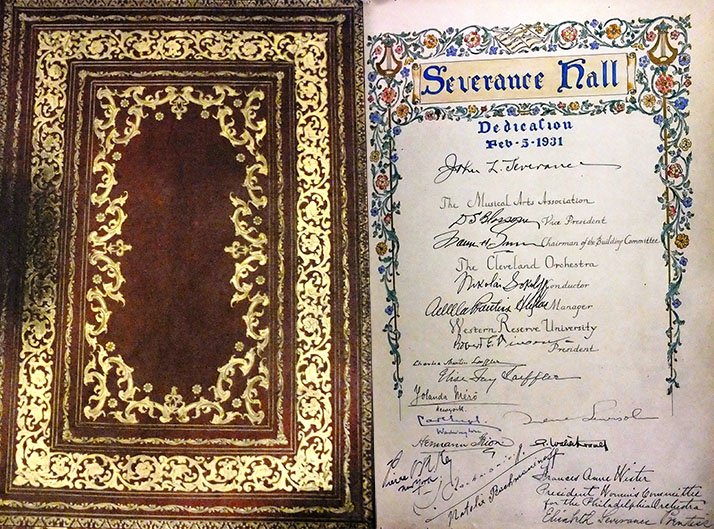 Severance Hall
Dedication
Feb-5-1931
John L. Severance
The Musical Arts Association
D S Blossom Vice President
Chairman of the Building Committee
The Cleveland Orchestra
Nikolai Sokoloff Conductor
Adella Prentiss Hughes Manager
Western Reserve University
Robert E Vinson President
Charles Martin Loeffler
Elise Fay Loeffler
Yolanda Mérö
New York
Washington
Hermann
Natalia Rachmaninoff
Frances Anne Wister
President Women's Committee
for the Philadelphia Orchestra
Elisabeth Severance Prentiss